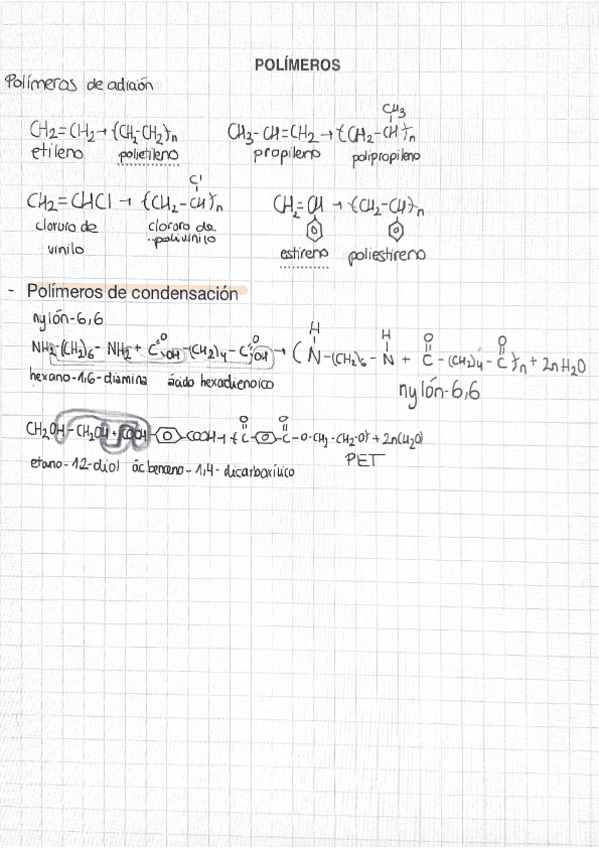 POLÍMEROS
Polímeros de adición
CH2=CH2→{CH2-CH2}n
etileno polietileno
CH3-CH=CH2→{CH2-CH}n
CH3
propileno polipropileno
CH2=CHCl→{CH2-CH}n
Cl
cloruro de vinilo
cloruro de polivinilo
CH2=CH→{CH2-CH}n
estireno poliestireno
- Polímeros de condensación
nylón-6,6
NH2-(CH2)6-NH2+C OOH-(CH2)4-C OOH→(N-(CH2)6-N+C-(CH2)4-C}n+2nH2O
H H O O
hexano-1,6-diamina ácido hexadienoico
nylón-6,6
CH2OH-CH2OH+COOH- -COOH→{C- -C-O-CH2-CH2-O}+2n(H2O)
O O
etano-12-diol ác benceno-1,4-dicarboxílico
PET